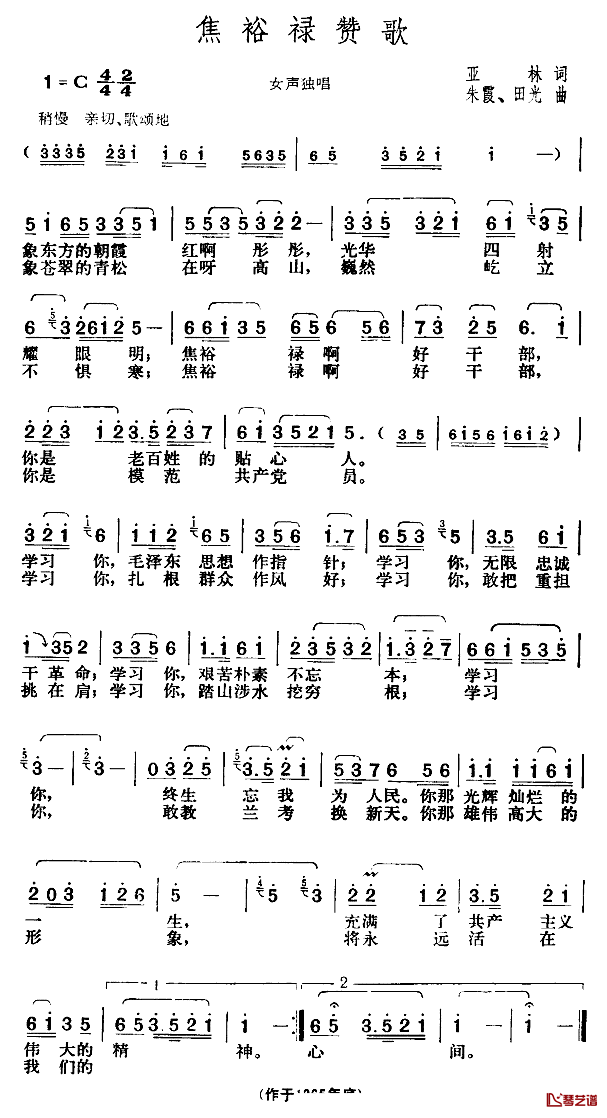 焦裕禄赞歌
1=C 4/4 2/4
女声独唱
亚 林 词
朱霞、田光 曲
稍慢 亲切、歌颂地
(3335 231 161 5635 65 3521 1 1 —)
5165335 1 5535322— 335 321 61 35
象东方的朝霞 红啊 彤彤, 光华 四射
象苍翠的青松 在呀 高山, 巍然 屹立
6 3 26125— 66135 656 56 73 25 6.
耀 眼 明; 焦裕 禄啊 好 干部,
不 惧 寒; 焦裕 禄啊 好 干部,
223 123.5237 6135215. (35 6156 1612)
你是 老百姓的 贴心 人。
你是 模范 共产党 员。
321 6 112 65 356 1.7 653 5 3.5 61
学习 你, 毛泽东 思想 作指 针; 学习 你, 无限 忠诚
学习 你, 扎根 群众 作风 好; 学习 你, 敢把 重担
1 352 335 6 1.161 2353 1.327 661535
干 革命; 学习 你, 艰苦朴素 不忘 本; 学习
挑 在肩; 学习 你, 踏山涉水 挖穷 根; 学习
3— 3— 0325 3.521 5376 56 1.1 1161
你, 终生 忘我 为 人民。你那 光辉 灿烂的
你, 敢教 兰考 换 新天。你那 雄伟 高大的
203 126 5— 5 3 22 12 3.5 21
一 生, 充满 了 共产 主义
形 象, 将永 远 活 在
1 2
61 35 653.521 1— 65 3.521 1—
伟大的 精 神。 心 间。
我们的
琴艺谱